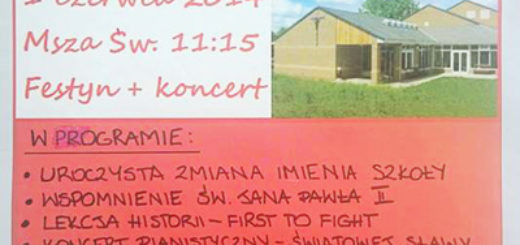 1 czerwca 2014
Msza Św. 11:15
Festyn + koncert
W PROGRAMIE:
• UROCZYSTA ZMIANA IMIENIA SZKOŁY
• WSPOMNIENIE ŚW. JANA PAWŁA II
• LEKCJA HISTORII – FIRST TO FIGHT
• KONCERT PIANISTYCZNY – ŚWIATOWEJ SŁAWY